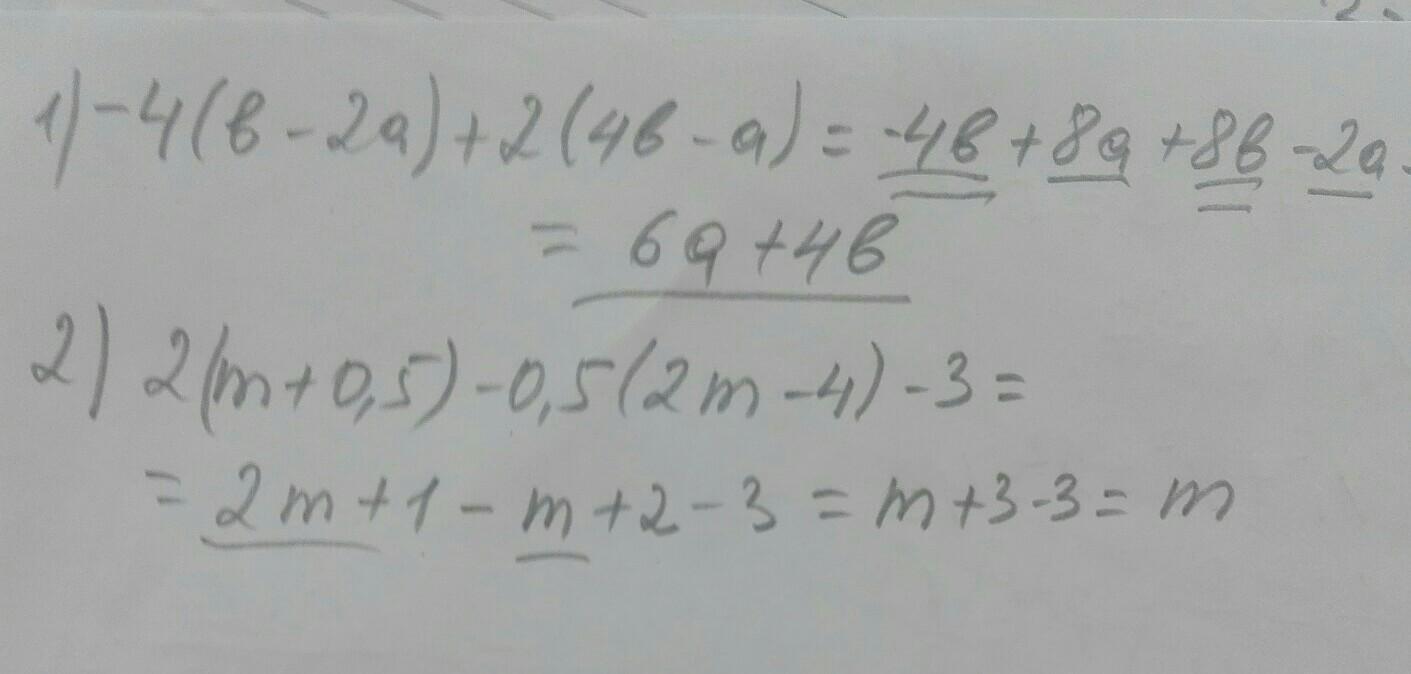 1) -4(в - 2а) + 2(4в - а) = -4в + 8а + 8в - 2а
= 6а + 4в
2) 2(m + 0,5) - 0,5(2m - 4) - 3 =
= 2m + 1 - m + 2 - 3 = m + 3 - 3 = m